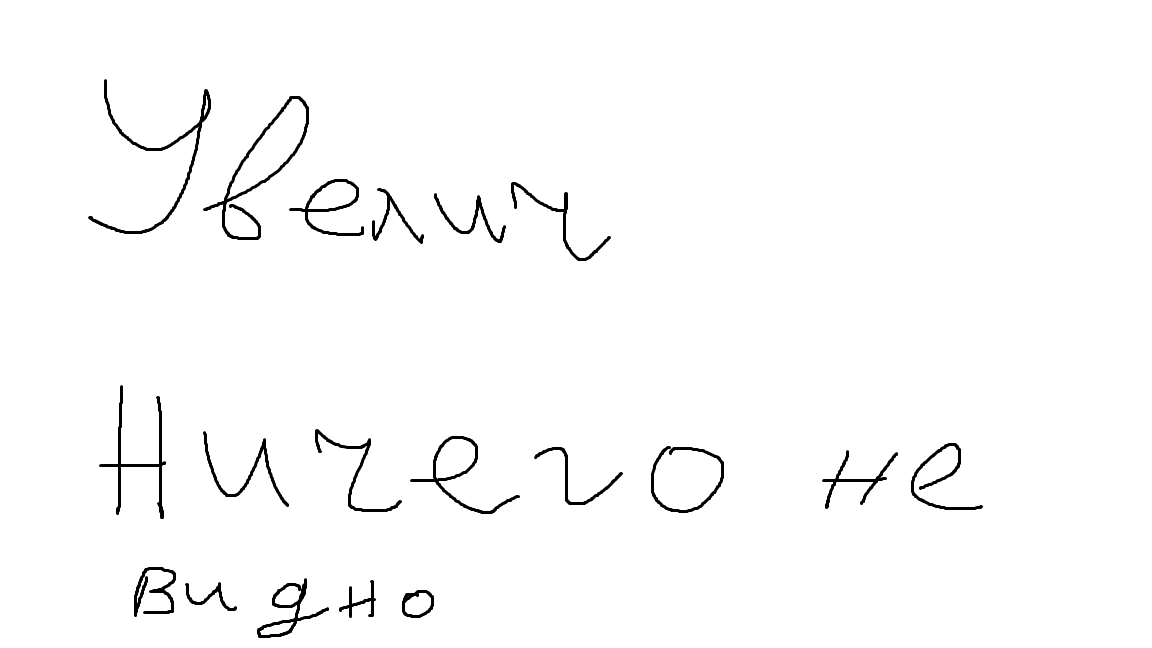 Увелич
Ничего не
видно